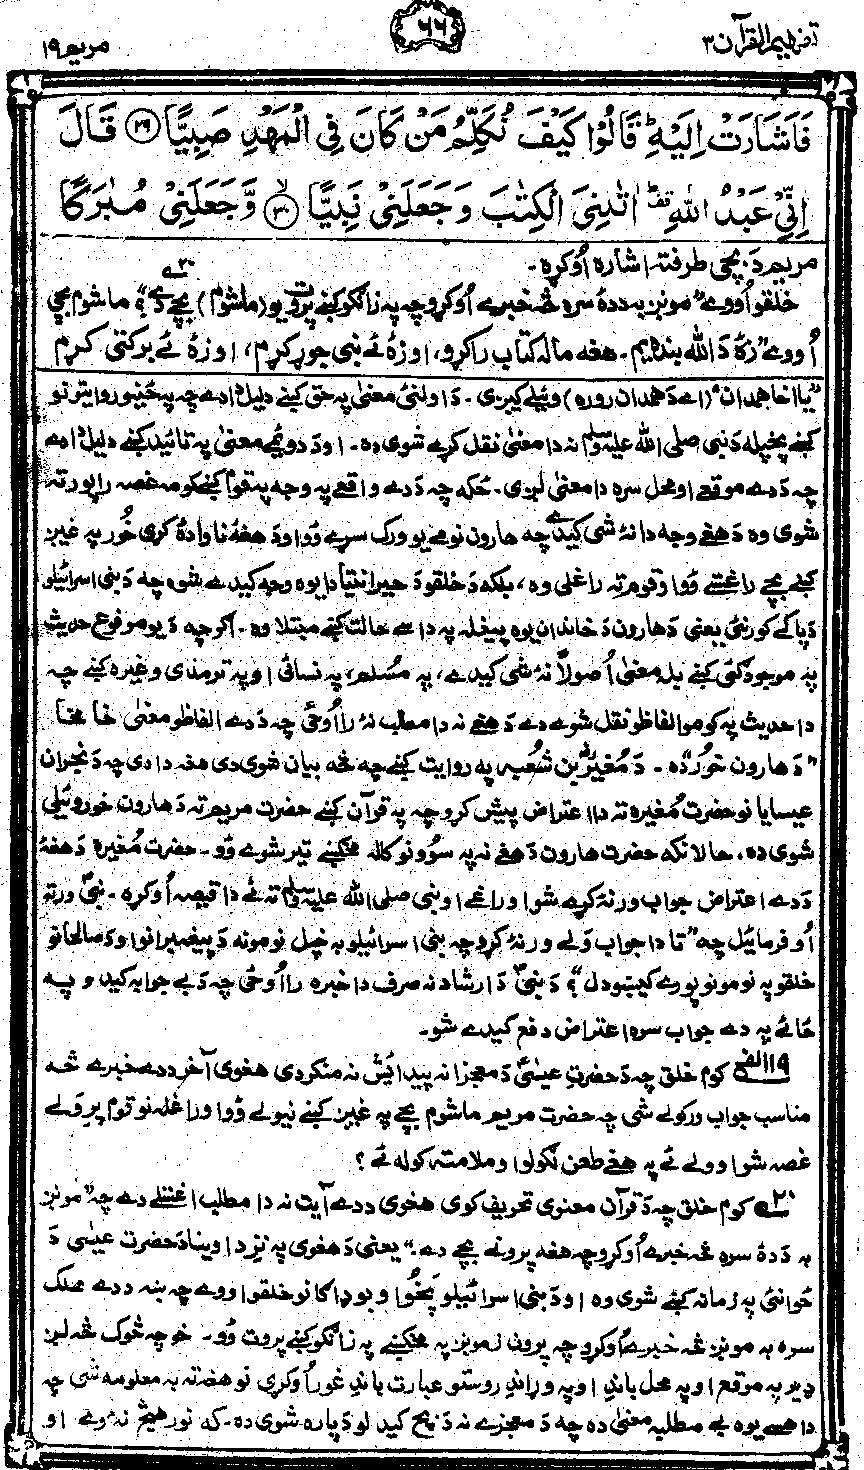 تفهیم القرآن ۳
۶۶
مریم ۱۹
فَاَشَارَتْ اِلَيْهِ ؕ قَالُوْا كَيْفَ نُكَلِّمُ مَنْ كَانَ فِي الْمَهْدِ صَبِيًّا ﴿۲۹﴾ قَالَ
اِنِّيْ عَبْدُ اللهِ ۟ اٰتٰىنِيَ الْكِتٰبَ وَجَعَلَنِيْ نَبِيًّا ﴿۳۰﴾ وَّجَعَلَنِيْ مُبٰرَكًا
مریم دَ بچی طرفته اشاره اُوکړه۔
خلقو اُووے ”مونږ به ددۀ سره څه خبرے اُوکړو چه په زانګو کښے پروت یو (ماشوم) بچے دے؟“ ماشوم بچی
اُووے ”زۀ دَ الله بنده یم۔ هغه ماله کتاب راکړو، او زۀ ئے نبی جوړ کړم، او زۀ ئے برکتی کړم
”یا اخا همدان“ (اے دَ همدان روره) وئیلے کیږی۔ دَ اولنئ معنیٰ په حق کښے دلیل دا دے چه په ځینو روایتونو
کښے پخپله دَ نبی صلی الله علیه وسلم نه دا معنیٰ نقل کړے شوی ده۔ او دَ دوئمے معنیٰ په تائید کښے دلیل دا دے
چه دَ دے موقعے او محل سره دا معنیٰ لږی۔ ځکه چه دَ دے واقعے په وجه په قوم کښے کومه غصه راپورته
شوی وه دَ هغے وجه دا نۀ شی کیدے چه هارون نومے یو ورک سړے وُو او دَ هغۀ ناواده کړی خُور په غیږ
کښے بچے راغستے وُو او قوم ته راغلی وه، بلکه دَ خلقو دَ حیرانتیا دا یوه وجه کیدے شوه چه دَ بنی اسرائیلو
دَ پاکے کورنئ یعنی دَ هارون دَ خاندان یوه پیغله په داسے حالت کښے مبتلا وه۔ اګرچه دَ یو مرفوع حدیث
په موجودګئ کښے بله معنیٰ اُصولاً نۀ شی کیدے، په مُسلم، په نسائی او په ترمذی وغیره کښے چه
دا حدیث په کومو الفاظو نقل شوے دے دَ هغے نه دا مطلب نۀ رااُوځی چه دَ دے الفاظو معنیٰ خامخا
”دَ هارون خور“ ده۔ دَ مُغیرهؓ بن شُعبه په روایت کښے چه څه بیان شوی دی هغه دا دی چه دَ نجران
عیسایانو حضرت مُغیره ته دا اعتراض پیش کړو چه په قرآن کښے حضرت مریم ته دَ هارون خور وئیلی
شوی ده، حالانکه حضرت هارون دَ هغے نه په سوُونو کاله مخکښے تیر شوے وُو۔ حضرت مُغیره دَ هغۀ
دَ دے اعتراض جواب ورنۀ کړے شو او راغے او نبی صلی الله علیه وسلم ته ئے دا قیصه اُوکړه۔ نبیؐ ورته
اُوفرمائیل چه ”تا دا جواب ولے ورنۀ کړو چه بنی اسرائیلو به خپل نومونه دَ پیغمبرانو او دَ صالحانو
خلقو په نومونو پورے کیښودل“؟ دَ نبیؐ دَ ارشاد نه صرف دا خبره رااُوځی چه دَ بے جوابه کیدو په
ځائے په دے جواب سره اعتراض دفع کیدے شو۔
۱۹ الف کوم خلق چه دَ حضرتِ عیسیٰؑ دَ معجزانه پیدائش نه منکر دی هغوی آخر ددے خبرے څه
مناسب جواب ورکولے شی چه حضرت مریم ماشوم بچے په غیږ کښے نیولے وُو او راغله نو قوم پرے ولے
غصه شو او ولے ئے په هغے طعن لګولو او ملامته کوله ئے؟
۲۰ کوم خلق چه دَ قرآن معنوی تحریف کوی هغوی ددے آیت نه دا مطلب اغستلے دے چه ”مونږ
به ددۀ سره څه خبرے اُوکړو چه هغه پرونے بچے دے۔“ یعنی دَ هغوی په نزد دا وینا دَ حضرت عیسیٰ دَ
ځوانئ په زمانه کښے شوی وه او دَ بنی اسرائیلو پخُوا و بوډاګانو خلقو اووے چه بنه ددے هلک
سره به مونږ څه خبرے اُوکړو چه پرون زمونږ په مخکښے په زانګو کښے پروت وُو۔ خو چه څوک څه لږ
ډیر په موقع او په محل باندِ او په وړاندِ روستو عبارت باندِ غور اُوکړی نو هغه ته به معلومه شی چه
دا هسے یوه بے مطلبه معنیٰ ده چه دَ معجزے نه دَ بچ کیدلو دَ پاره شوی ده۔ که نور هیڅ نه وے او